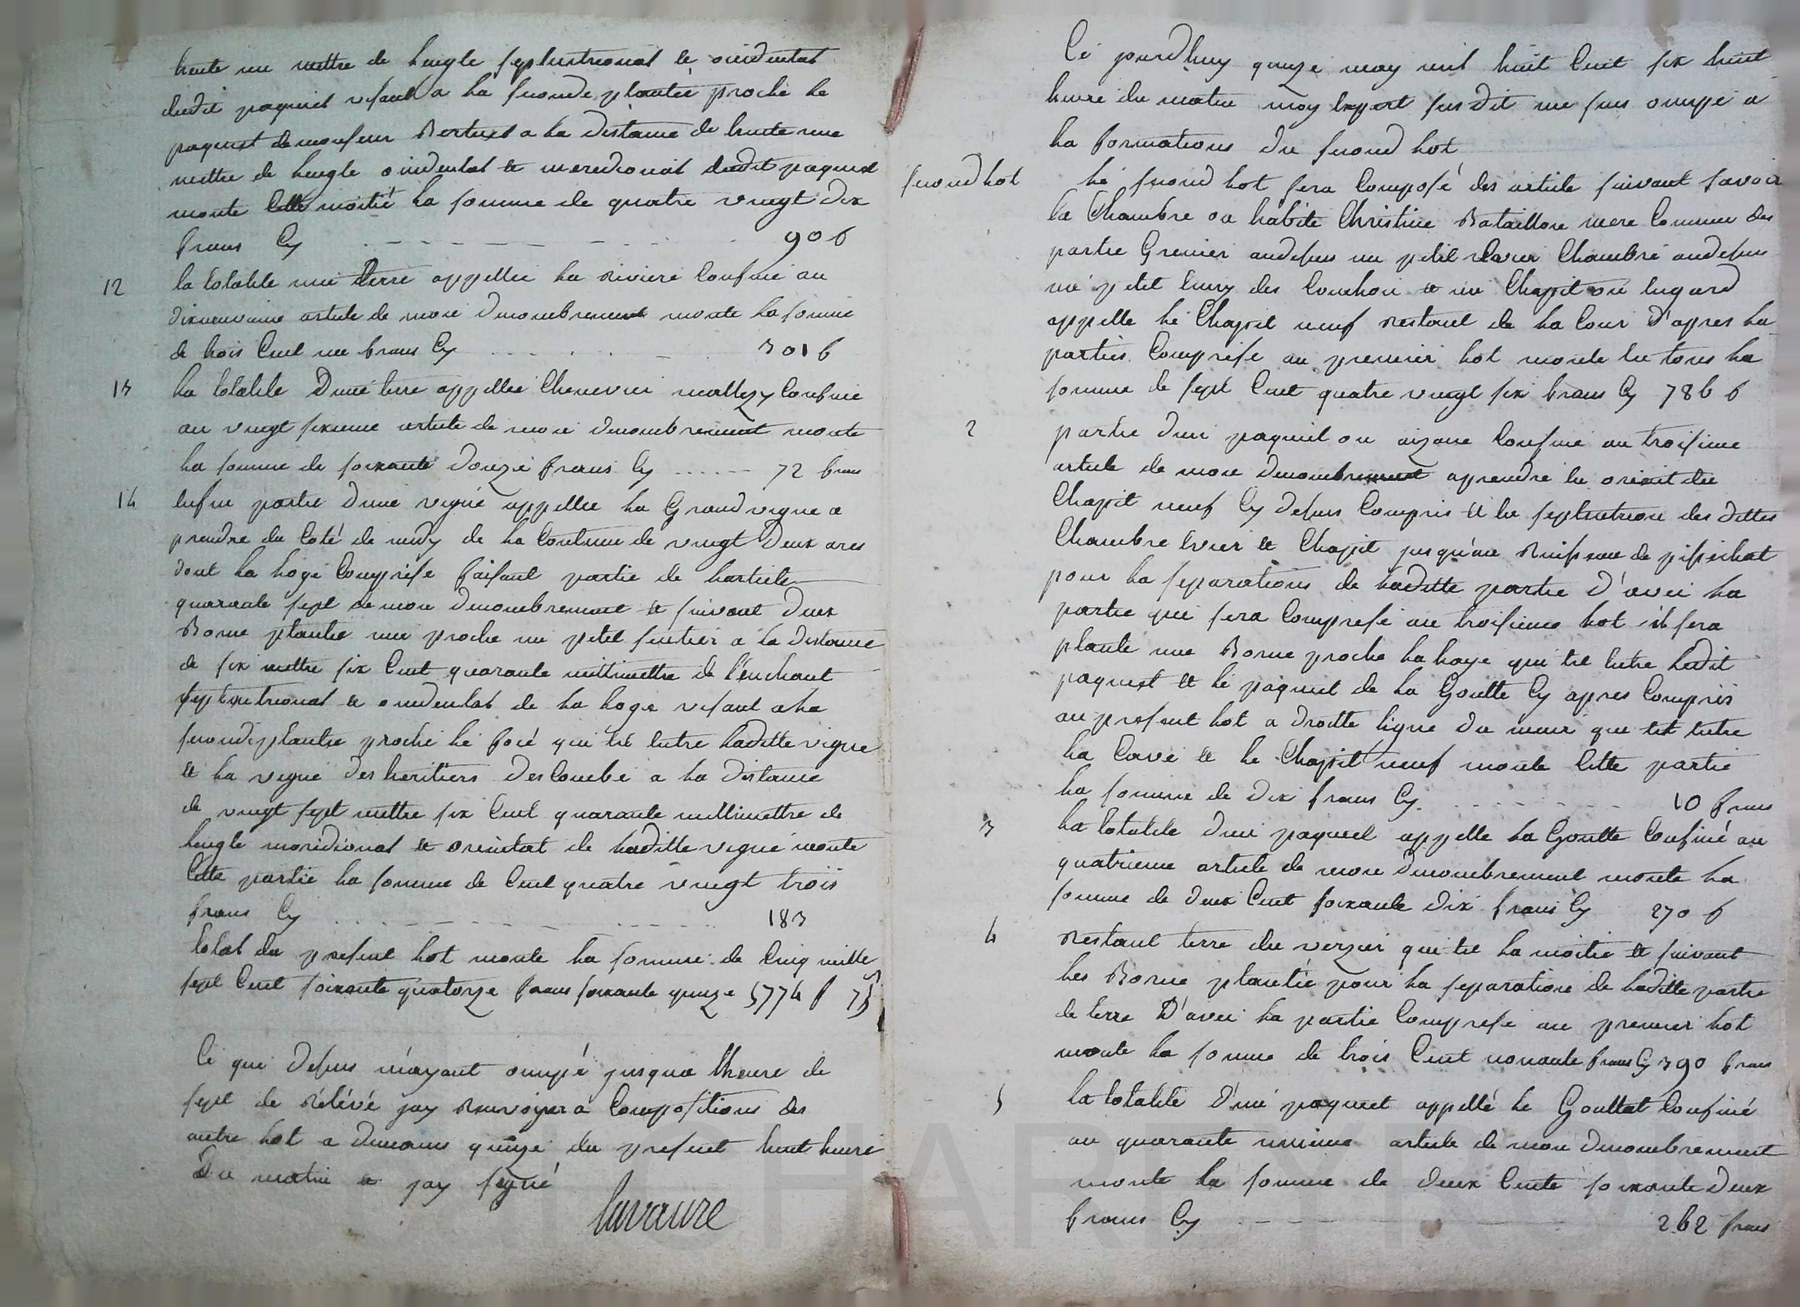 trente un mettre de lengle septentrional et oxidental
dudit paquiet visant a la seconde plantée proche le
paquiet de monsieur Bertuel a la distance de trente une
mettre de lengle oxidental et meredional dudit paquiet
monte cette moitié la somme de quatre vingt dix
frans Cy 90 f
12 la totalité une terre appellée la riviere confiné au
dixneuvieme article de mon denombrement monte la somme
de trois Cent un frans Cy 301 f
13 la totalité d'une terre appellée Chenevier mallezy confiné
au vingt sixieme article de mon denombrement monte
la somme de soixante douze frans Cy 72 frans
14 enfin partie d'une vigne appellée la Grand vigne a
prendre du Coté de midy de la Contenue de vingt deux ares
dont la loge Comprise faisant partie de larticle
quarante sept de mon denombrement et suivant deux
Borne plantée une proche un petit sentier a la distance
de six mettre six Cent quarante millimettre de l'enchant
septentrional et oxidental de la loge visant a la
seconde plantée proche le focé qui est entre laditte vigne
et la vigne des heritiers Descombe a la distance
de vingt sept mettre six Cent quarante millimettre de
lengle meridional et orientat de laditte vigne monte
Cette partie la somme de Cent quatre vingt trois
frans Cy 183
total du present lot monte la somme de Cinq mille
sept Cent soixante quatorze frans soixante quinze 5774 f 75
Ce que desus m'ayant ocupé jusqua l'heure de
sept de rélévé jay renvoyer a Compositions des
autre lot a demains quinze du present huit heure
Du matin et jay signé
Lavaure
Ce jourdhuy quinze may mil huit Cent six huit
heure du matin moy Expert susdit me suis ocupé a
la formations du second lot
second lot
le second lot sera Composé des article suivant savoir
la Chambre ou habite Christine Bataillon mere Commune des
partie Grenier audesus un petit Chambre audesus
un petit des Couchon et un Chapit ou engard
appelle le Chapit neuf restant de la Cour d'apres la
parties Comprise au premier lot monte en tous la
somme de sept Cent quatre vingt six frans Cy 786 f
2 partie d'un paquiet ou aizane confiné au troisieme
article de mon denombrement aprendre en orient du
Chapit neuf Cy desus Compris et en septentrion des dittes
Chambre Evier et Chapit jusqu'au Ruisseau de pissechat
pour la separations de laditte partie d'avec la
partie qui sera Comprise au troisieme lot il sera
planté une Borne proche la haye qui est entre ledit
paquiet et le paquiet de la Goutte Cy apres Compris
au present lot a droitte ligne du mur qui est entre
la Cave et le Chapit neuf monte Cette partie
la somme de dix frans Cy 10 frans
3 la totalité d'un paquiet appelle la Goutte Confiné au
quatrieme article de mon denombrement monte la
somme de deux Cent soixante dix frans Cy 270 f
4 restant terre du verzier qui est la moitié et suivant
les Borne plantée pour la separations de laditte partie
de terre D'avec la partie Comprise au premier lot
monte la somme de trois Cent nonante frans Cy 390 frans
5 la totalité d'un paquiet appellé le Gouttat Confiné
au quarante unieme article de mon denombrement
monte la somme de deux Cents soixante deux
frans Cy 262 frans